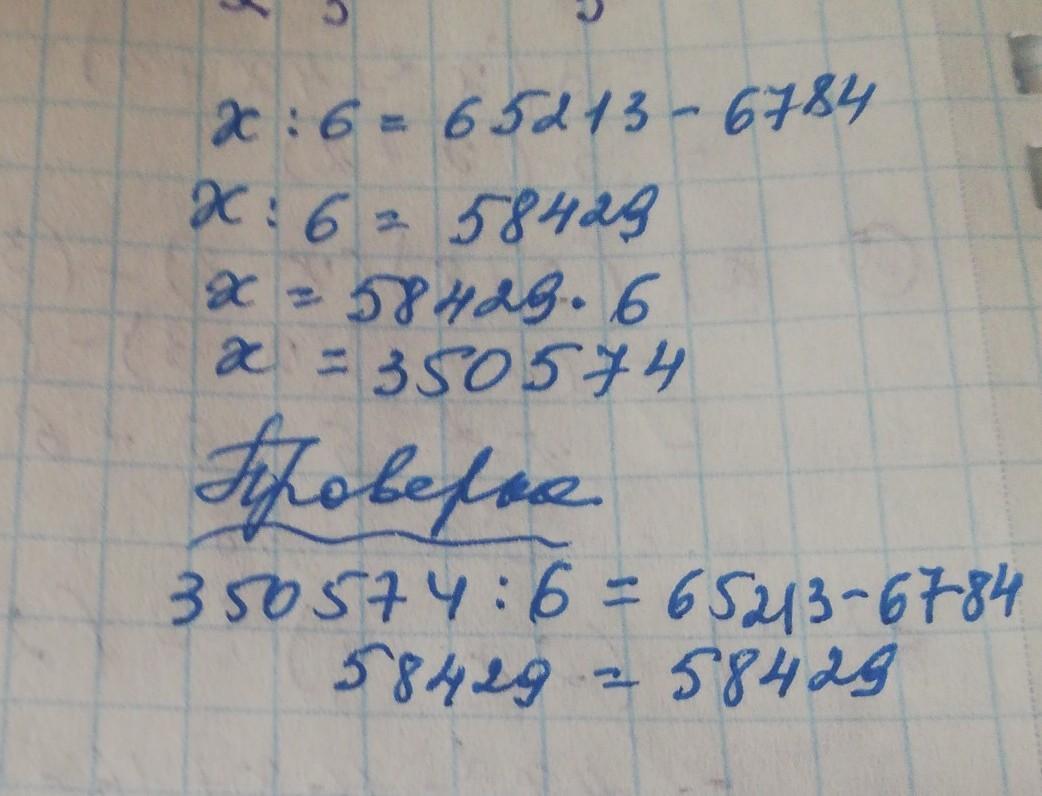 x : 6 = 65213 - 6784
x : 6 = 58429
x = 58429 · 6
x = 350574
Проверка
350574 : 6 = 65213 - 6784
58429 = 58429